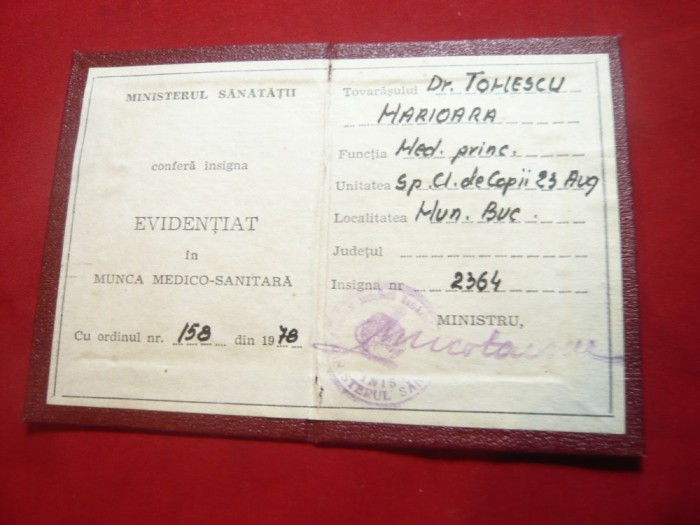 MINISTERUL SĂNĂTĂȚII
conferă insigna
EVIDENȚIAT
în
MUNCA MEDICO-SANITARĂ
Cu ordinul nr. 158 din 1978
Tovarășului Dr. TOMESCU
MARIOARA
Funcția Med. princ.
Unitatea Sp. Cl. de Copii 23 Aug
Localitatea Mun. Buc.
Județul
Insigna nr 2364
MINISTRU,